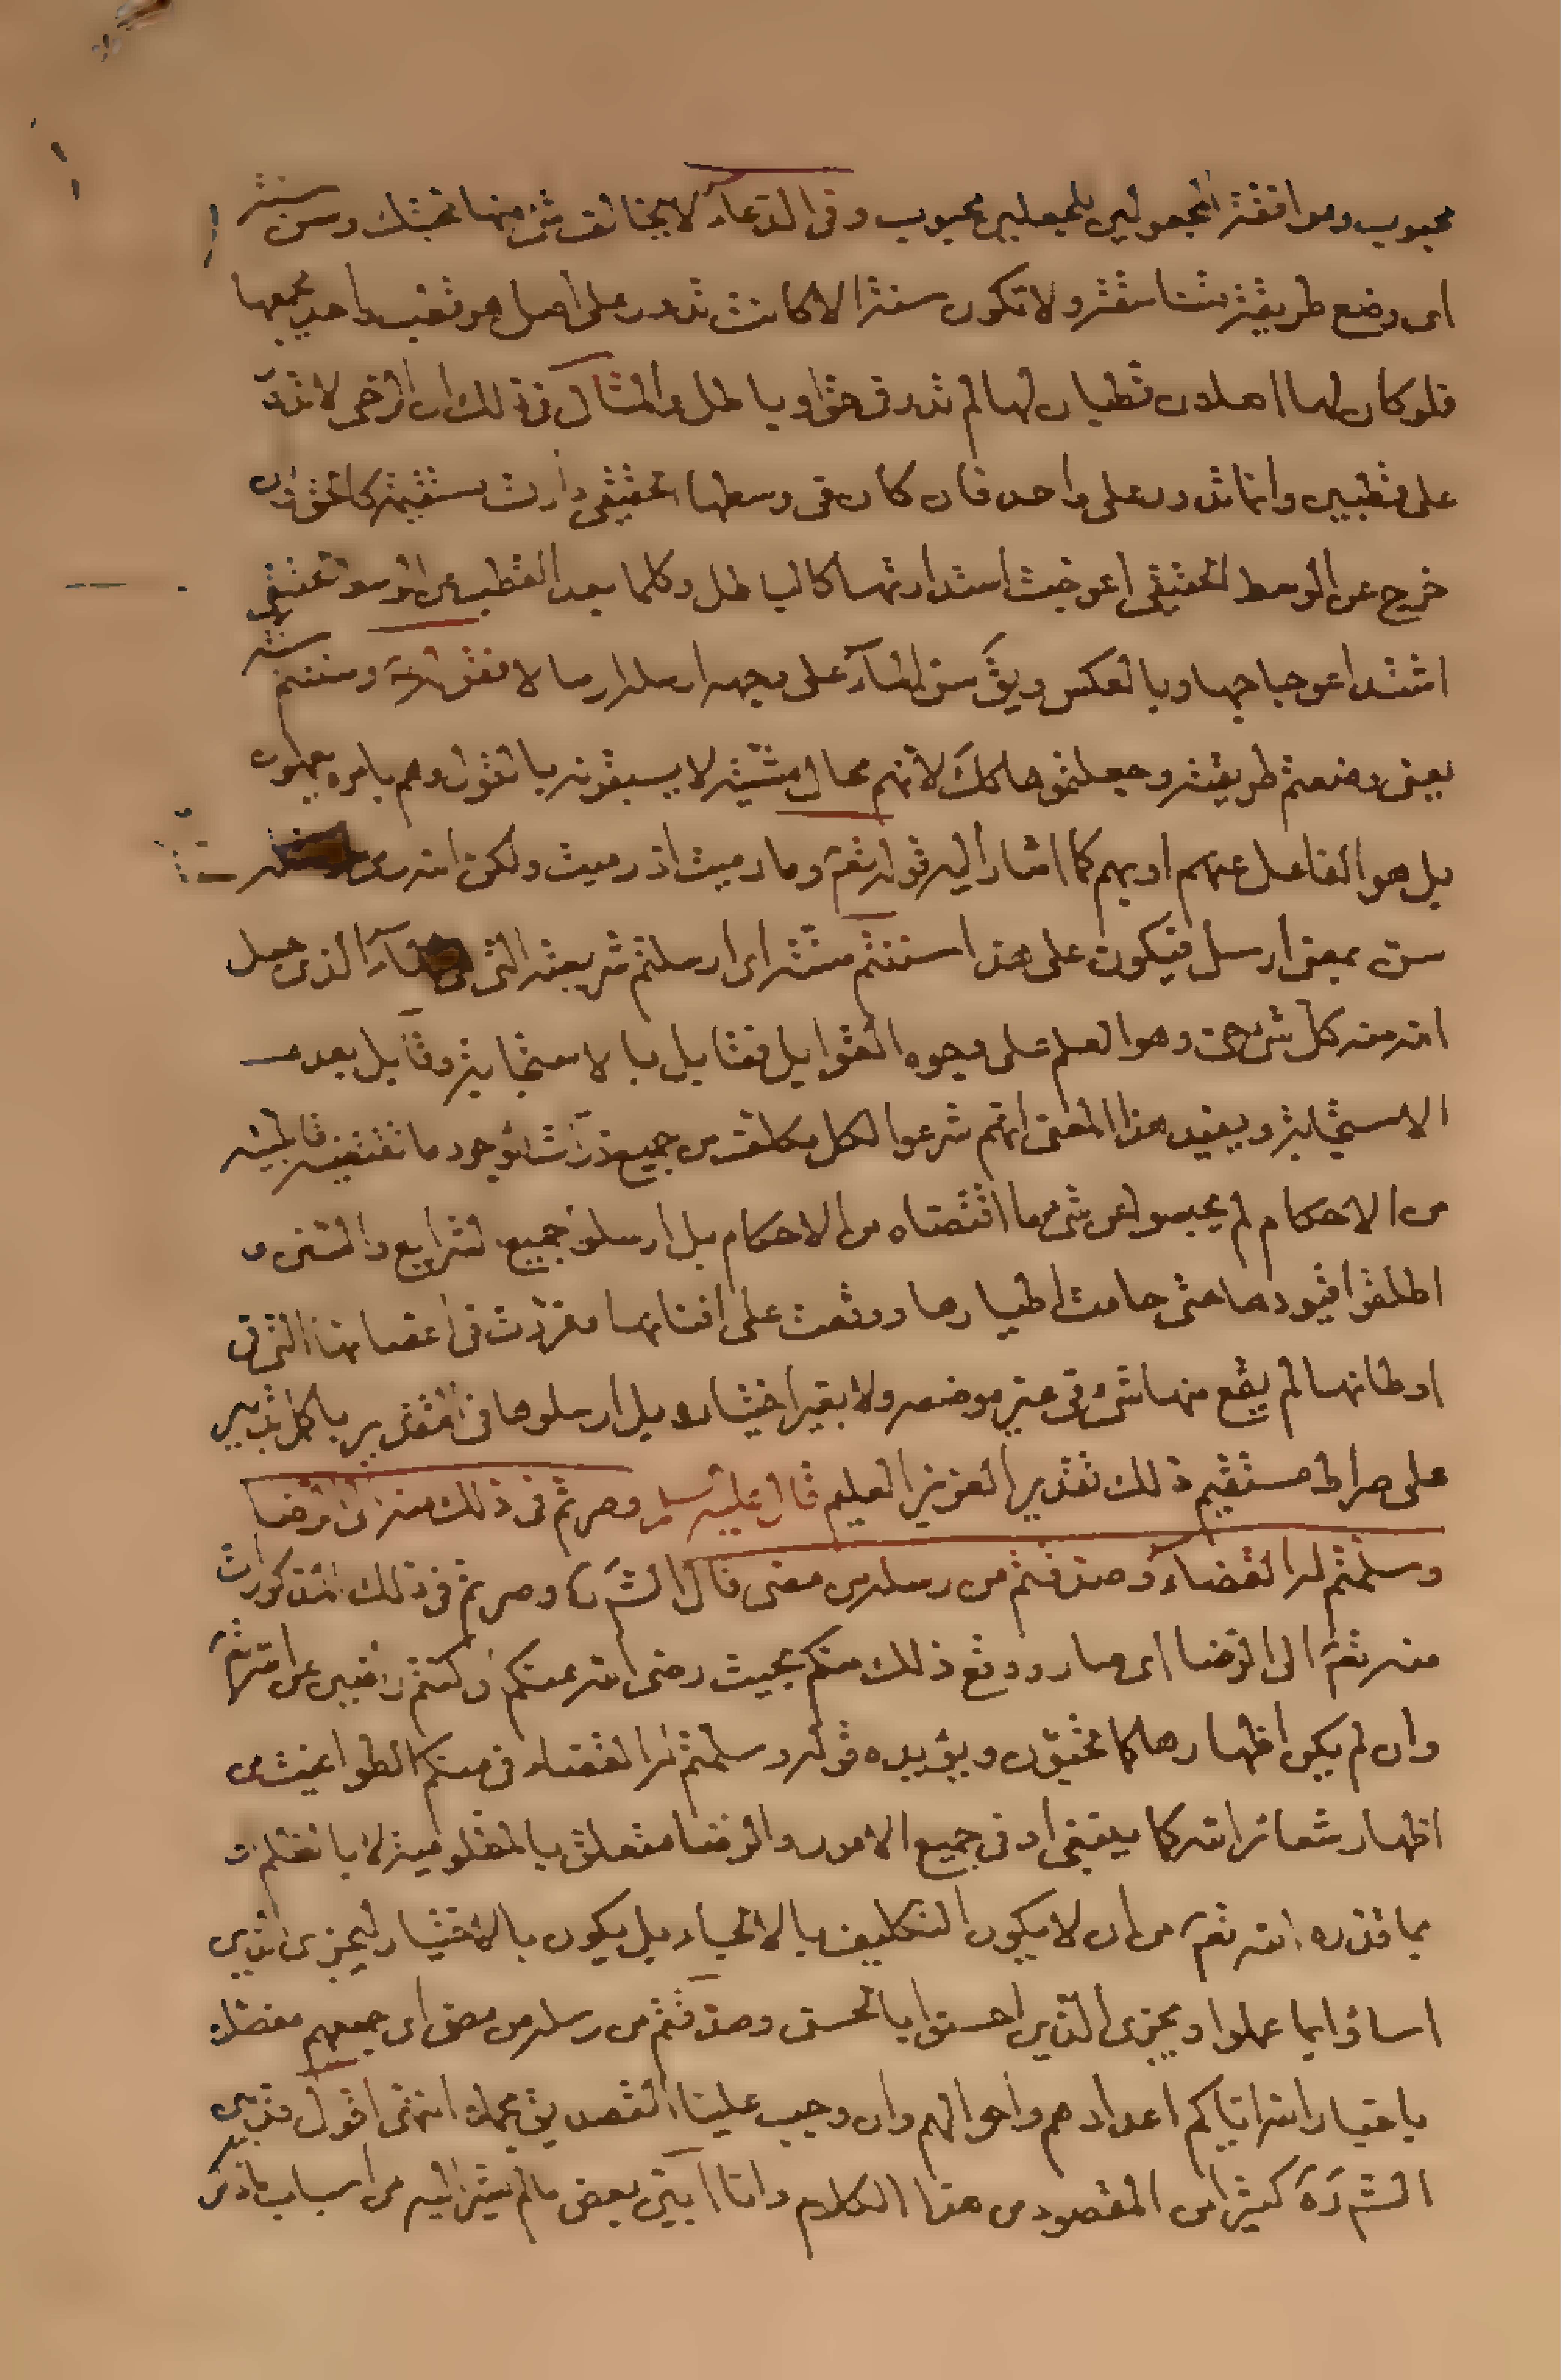 محبوب وموافقة المجعولين للجعلين محبوب وفى الدعاء لا يخالف شئ منها محبتك وسن سنة
اى وضع طريقة متناسقة ولا تكون سنة الا كانت تدور على اصل هو قطب واحد يجمعها
فلو كان لها اصلان قطبان لها لم تدر فى حق او باطل والمثال فى ذلك ان الرحى لا تدور
على قطبين وانما تدور على واحد فان كان فى وسطها الحقيقى دارت مستقيمة كالحق فان
خرج عن الوسط الحقيقى اعوجت استدارتها كالباطل وكلما بعد القطب عن الوسط الحقيقى
اشتد اعوجاجها وبالعكس ويق سن الماء على وجهه ارسله ارسالا من غير تفرقة وسننتم سنته
يعنى وضعتم طريقته وجعلتموها كك لانهم محال مشيته لا يسبقونه بالقول وهم بامره يعملون
بل هو الفاعل عنهم او بهم كما اشار اليه قوله تعم وما رميت اذ رميت ولكن الله رمى
سن بمعنى ارسل فيكون على هذا سننتم سنته اى ارسلتم شريعته التى هى الماء الذى جعل
الله منه كل شئ حى وهو العلم على وجوه القوابل فقابل بالاستجابة وقابل بعدم
الاستجابة ويفيد هذا المعنى انهم شرعوا لكل مكلف من جميع ذرات الوجود ما تقتضيه قابليته
من الاحكام لم يحبسوا عن شئ ما اقتضاه من الاحكام بل ارسلوا جميع الشرايع والسنن و
اطلقوا قيودها حتى حامت اطيارها ووقعت على افنانها مغردت فى اغصانها التى فى
اوطانها لم يقع منها شئ فى غير موضعه ولا بغير اختياره بل ارسلوها فى التقدير باكمل تدبير
على صراط مستقيم ذلك تقدير العزيز العليم قال عليه السلام وصرتم فى ذلك منه الى الرضا
وسلمتم له القضاء وصدقتم من رسله من مضى قال الش ره وصرتم فى ذلك المذكورات
منه تعم الى الرضا اى صار ووقع ذلك منكم بحيث رضى الله عنكم او كنتم راضين عن الله تعم
وان لم يكن اظهارها كما تحبون ويؤيده قوله وسلمتم له القضاء فى منكم الطواغيت من
اظهار شعائر الله كما ينبغى او فى جميع الامور والرضا متعلق بالمظلومية لا بالظلم او
بما قدره الله تعم من ان لا يكون التكليف بالالجاء بل يكون بالاختيار ليجزى الذين
اساؤا بما عملوا ويجزى الذين احسنوا بالحسنى وصدقتم من رسله من مضى اى جميعهم مفصلا
باخبار الله اياكم اعدادهم واحوالهم وان وجب علينا التصديق بجملا انتهى اقول قد بين
الش ره كثيرا من المقصود من هذا الكلام وانا ابين بعض ما لم يشر اليه من اسباب ما ذكر